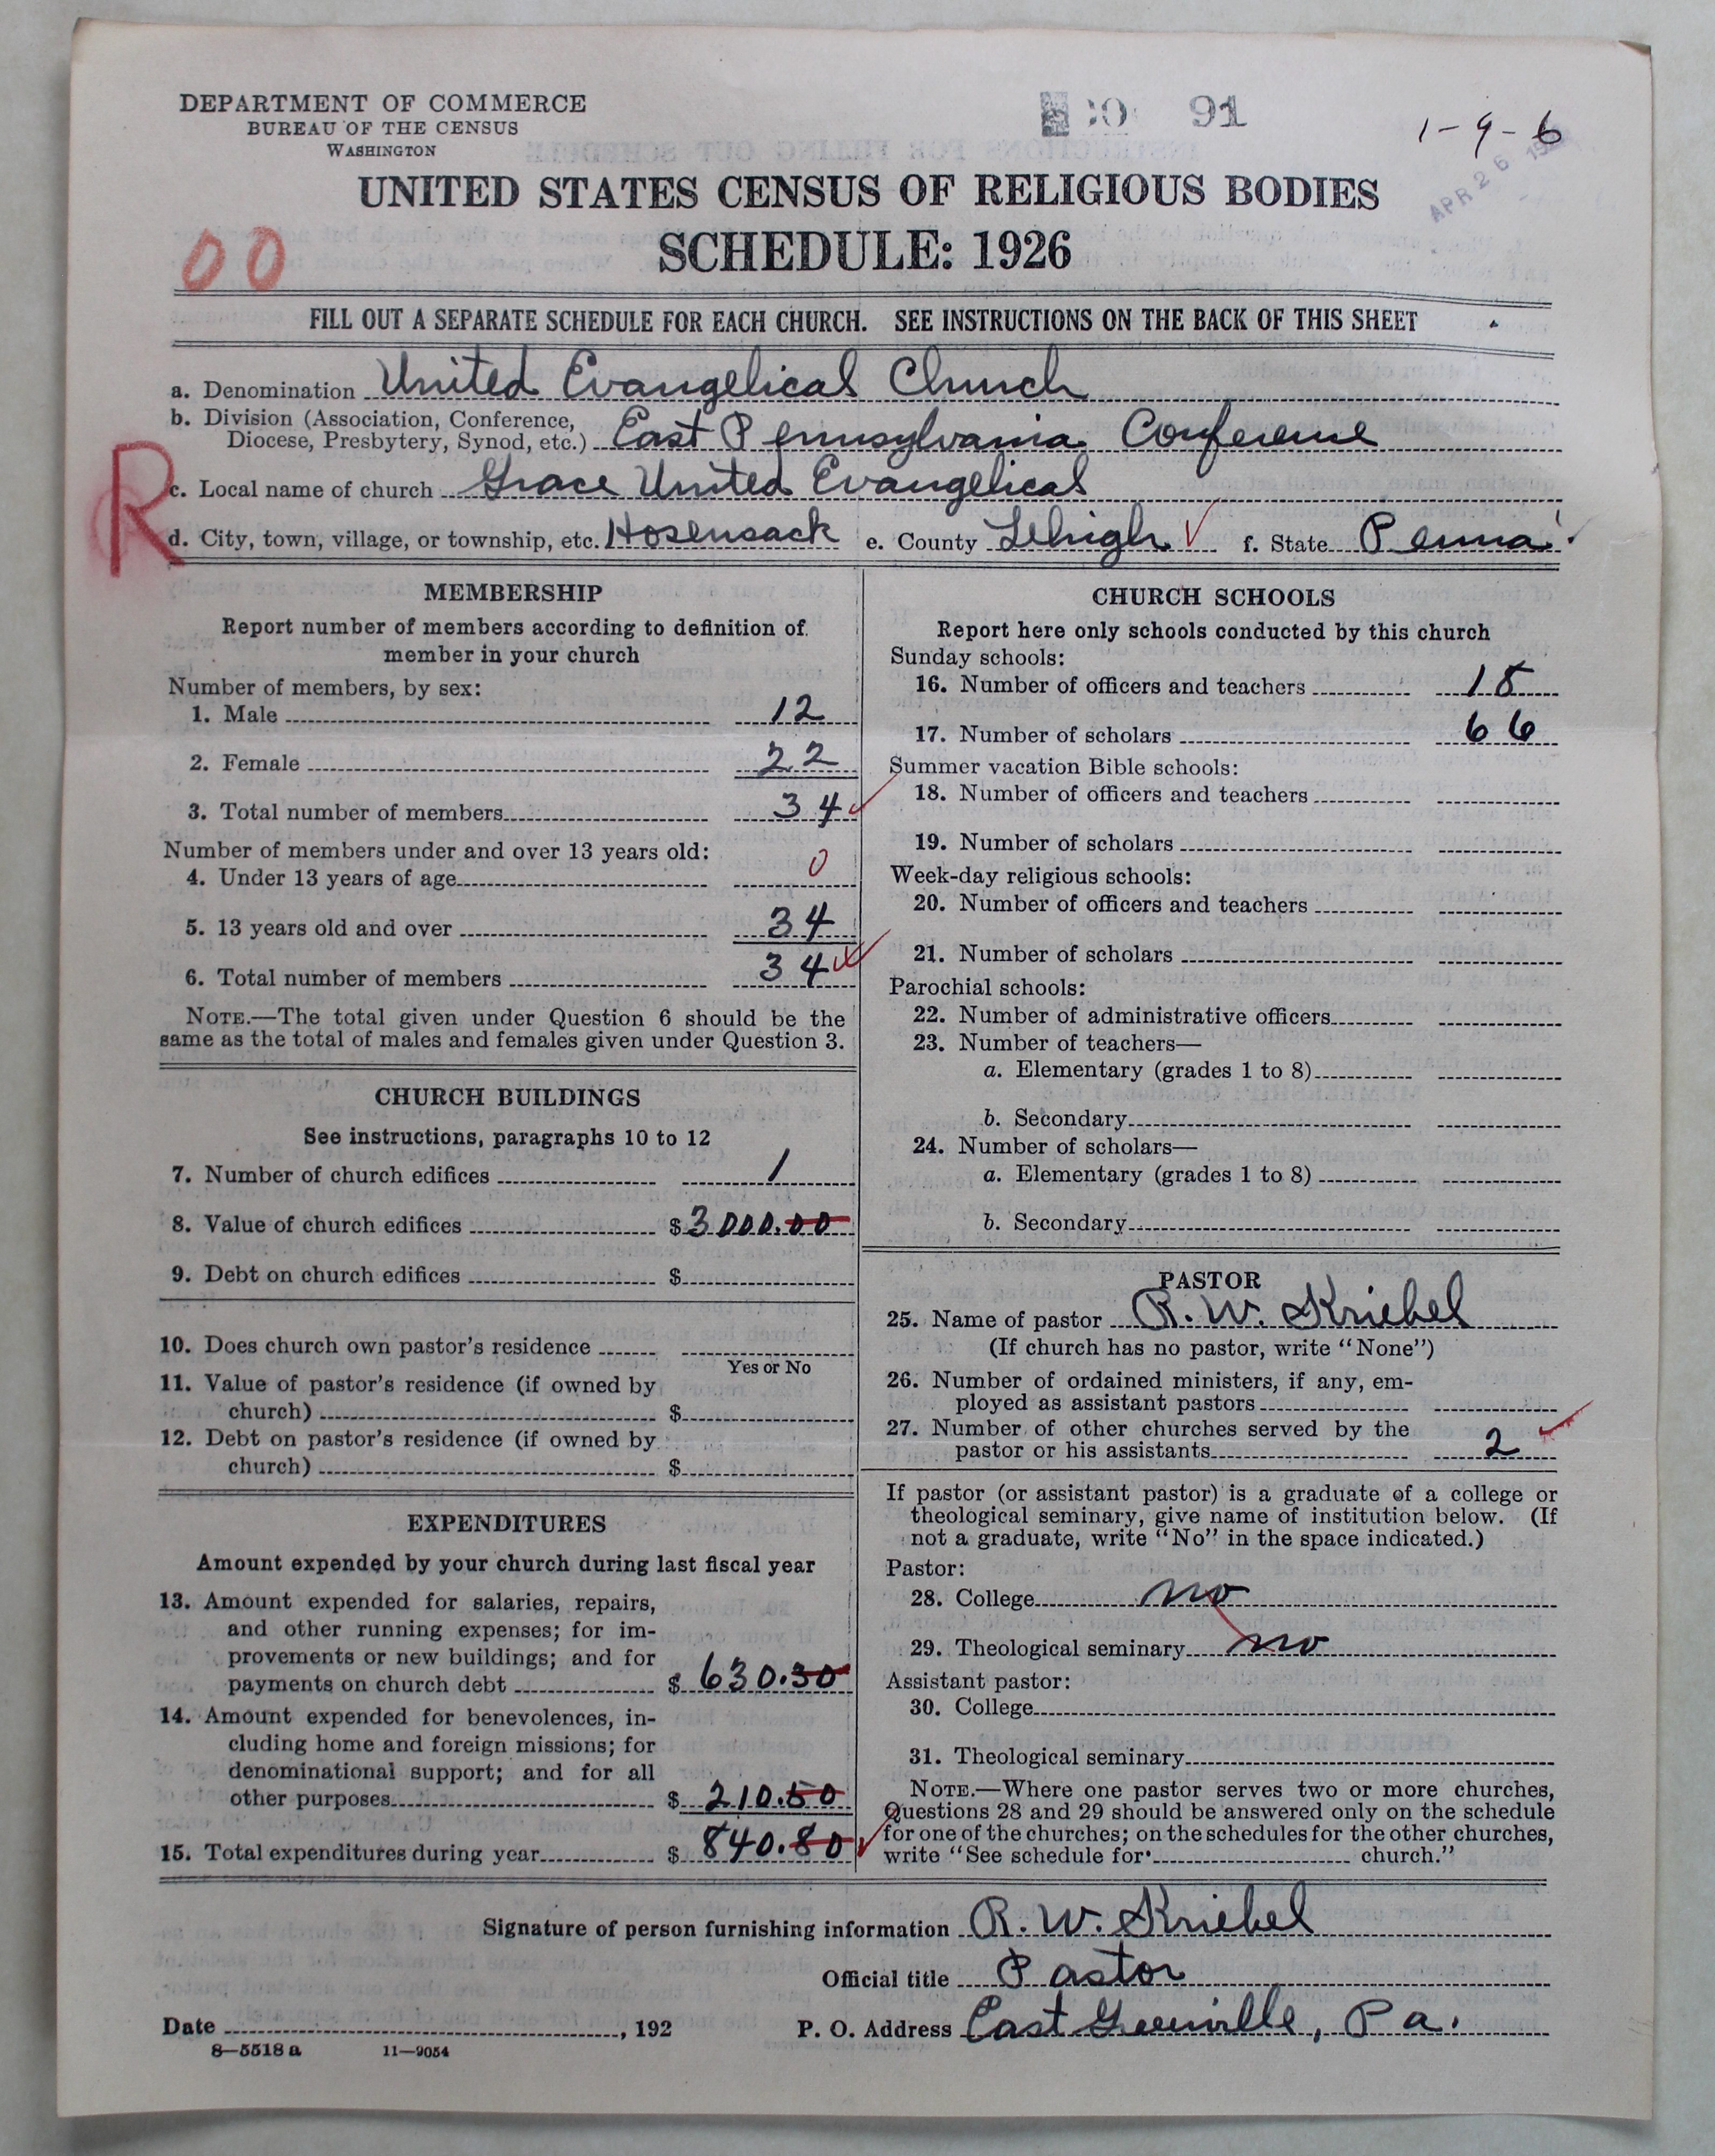 DEPARTMENT OF COMMERCE
BUREAU OF THE CENSUS
WASHINGTON
91
1-9-6
APR 26
UNITED STATES CENSUS OF RELIGIOUS BODIES
SCHEDULE: 1926
00
FILL OUT A SEPARATE SCHEDULE FOR EACH CHURCH. SEE INSTRUCTIONS ON THE BACK OF THIS SHEET
a. Denomination United Evangelical Church
b. Division (Association, Conference,
Diocese, Presbytery, Synod, etc.) East Pennsylvania Conference
R
c. Local name of church Grace United Evangelical
d. City, town, village, or township, etc. Hosensack e. County Lehigh f. State Penna.
MEMBERSHIP
Report number of members according to definition of
member in your church
Number of members, by sex:
1. Male 12
2. Female 22
3. Total number of members 34
Number of members under and over 13 years old:
4. Under 13 years of age 0
5. 13 years old and over 34
6. Total number of members 34
NOTE.—The total given under Question 6 should be the
same as the total of males and females given under Question 3.
CHURCH BUILDINGS
See instructions, paragraphs 10 to 12
7. Number of church edifices 1
8. Value of church edifices $ 3000.00
9. Debt on church edifices $
10. Does church own pastor's residence
Yes or No
11. Value of pastor's residence (if owned by
church) $
12. Debt on pastor's residence (if owned by
church) $
EXPENDITURES
Amount expended by your church during last fiscal year
13. Amount expended for salaries, repairs,
and other running expenses; for im-
provements or new buildings; and for
payments on church debt $ 630.30
14. Amount expended for benevolences, in-
cluding home and foreign missions; for
denominational support; and for all
other purposes $ 210.50
15. Total expenditures during year $ 840.80
CHURCH SCHOOLS
Report here only schools conducted by this church
Sunday schools:
16. Number of officers and teachers
17. Number of scholars 66
Summer vacation Bible schools:
18. Number of officers and teachers
19. Number of scholars
Week-day religious schools:
20. Number of officers and teachers
21. Number of scholars
Parochial schools:
22. Number of administrative officers
23. Number of teachers—
a. Elementary (grades 1 to 8)
b. Secondary
24. Number of scholars—
a. Elementary (grades 1 to 8)
b. Secondary
PASTOR
25. Name of pastor R. W. Kriebel
(If church has no pastor, write "None")
26. Number of ordained ministers, if any, em-
ployed as assistant pastors
27. Number of other churches served by the
pastor or his assistants 2
If pastor (or assistant pastor) is a graduate of a college or
theological seminary, give name of institution below. (If
not a graduate, write "No" in the space indicated.)
Pastor:
28. College no
29. Theological seminary no
Assistant pastor:
30. College
31. Theological seminary
NOTE.—Where one pastor serves two or more churches,
Questions 28 and 29 should be answered only on the schedule
for one of the churches; on the schedules for the other churches,
write "See schedule for church."
Signature of person furnishing information R. W. Kriebel
Official title Pastor
Date , 192 P. O. Address East Greenville, Pa.
8—5518 a 11—9054